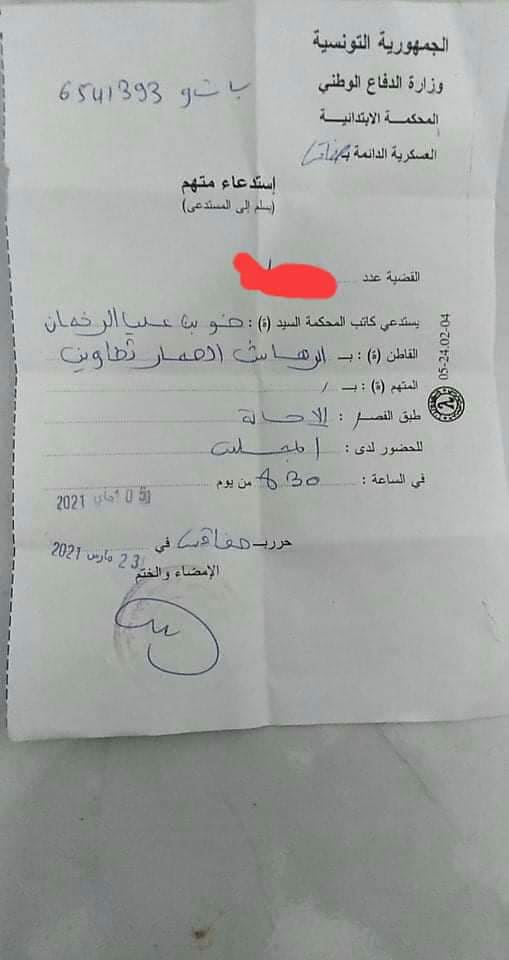 الجمهورية التونسية
وزارة الدفاع الوطني
المحكمة الابتدائية
العسكرية الدائمة بـ صفاقس
ب ت و 6541393
إستدعاء متهم
(يسلم إلى المستدعى)
القضية عدد
يستدعي كاتب المحكمة السيد (ة) : بن عبد الرحمان
القاطن (ة) : بـ تطاوين
المتهم (ة) : بـ /
طبق الفصل : الاحالة
للحضور لدى : المجلس
في الساعة : 8 30 من يوم 05 ماي 2021
حرر بـ صفاقس في 23 مارس 2021
الإمضاء والختم
05-24.02-04